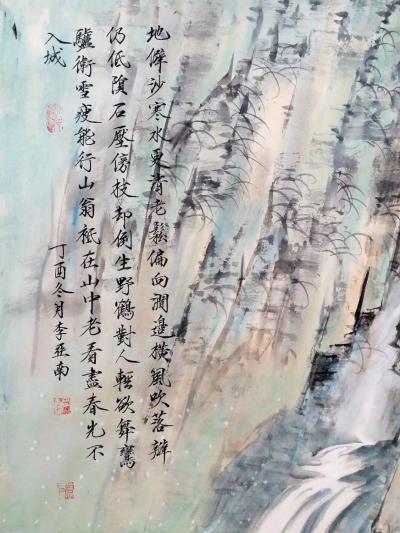 地僻沙寒水更清老鬆偏向澗邊橫風吹落瓣
仍低隕石壓傍枝却倒生野鶴對人輕欲舞
驢衝雪瘦能行山翁秪在山中老看盡春光不
入城
丁酉冬月李亞南